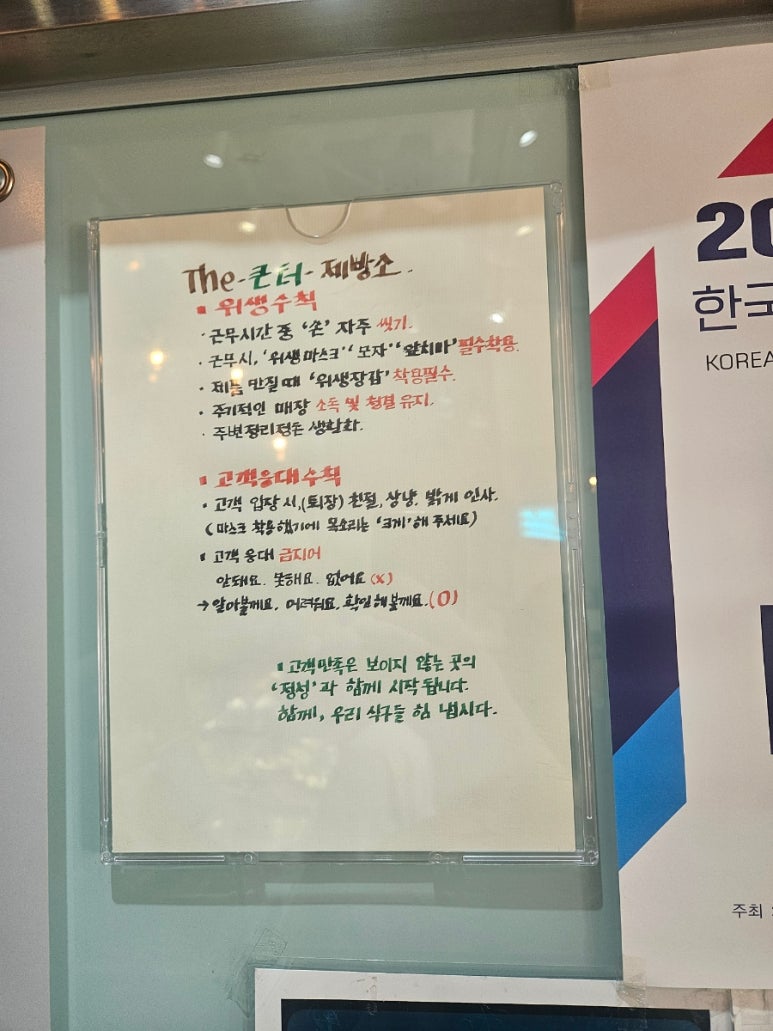 The-큰 터- 제빵소.
▪ 위생수칙
· 근무시간 중 '손' 자주 씻기.
· 근무시, '위생마스크' '모자' '앞치마' 필수착용.
· 제품 만질때 '위생장갑' 착용필수.
· 주기적인 매장 소독 및 청결 유지.
· 주변정리정돈 생활화.
▪ 고객응대수칙
· 고객 입장 시,(퇴장) 친절, 상냥. 밝게 인사.
(마스크 착용했기에 목소리는 '크게'해 주세요)
▪ 고객 응대 금지어
안돼요. 못해요. 없어요 (x)
→ 알아볼께요. 어려워요. 확인해볼께요.(O)
▪ 고객만족은 보이지 않는 곳의
'정성'과 함께 시작 됩니다.
함께, 우리 식구들 힘 냅시다.
20
한국
KOREA
주최 :